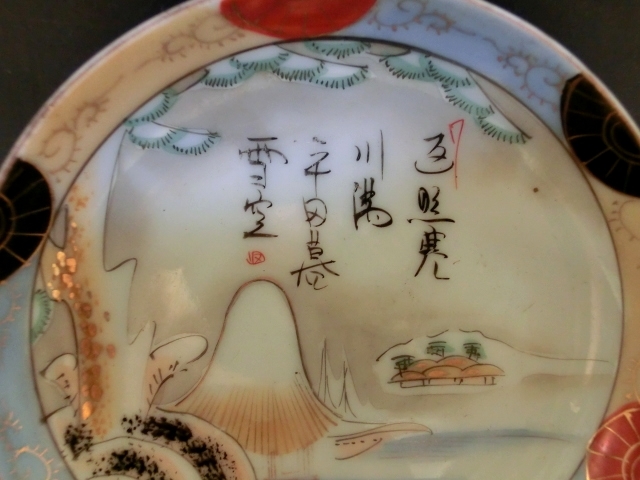 返照寒
川満
平田暮
雪空